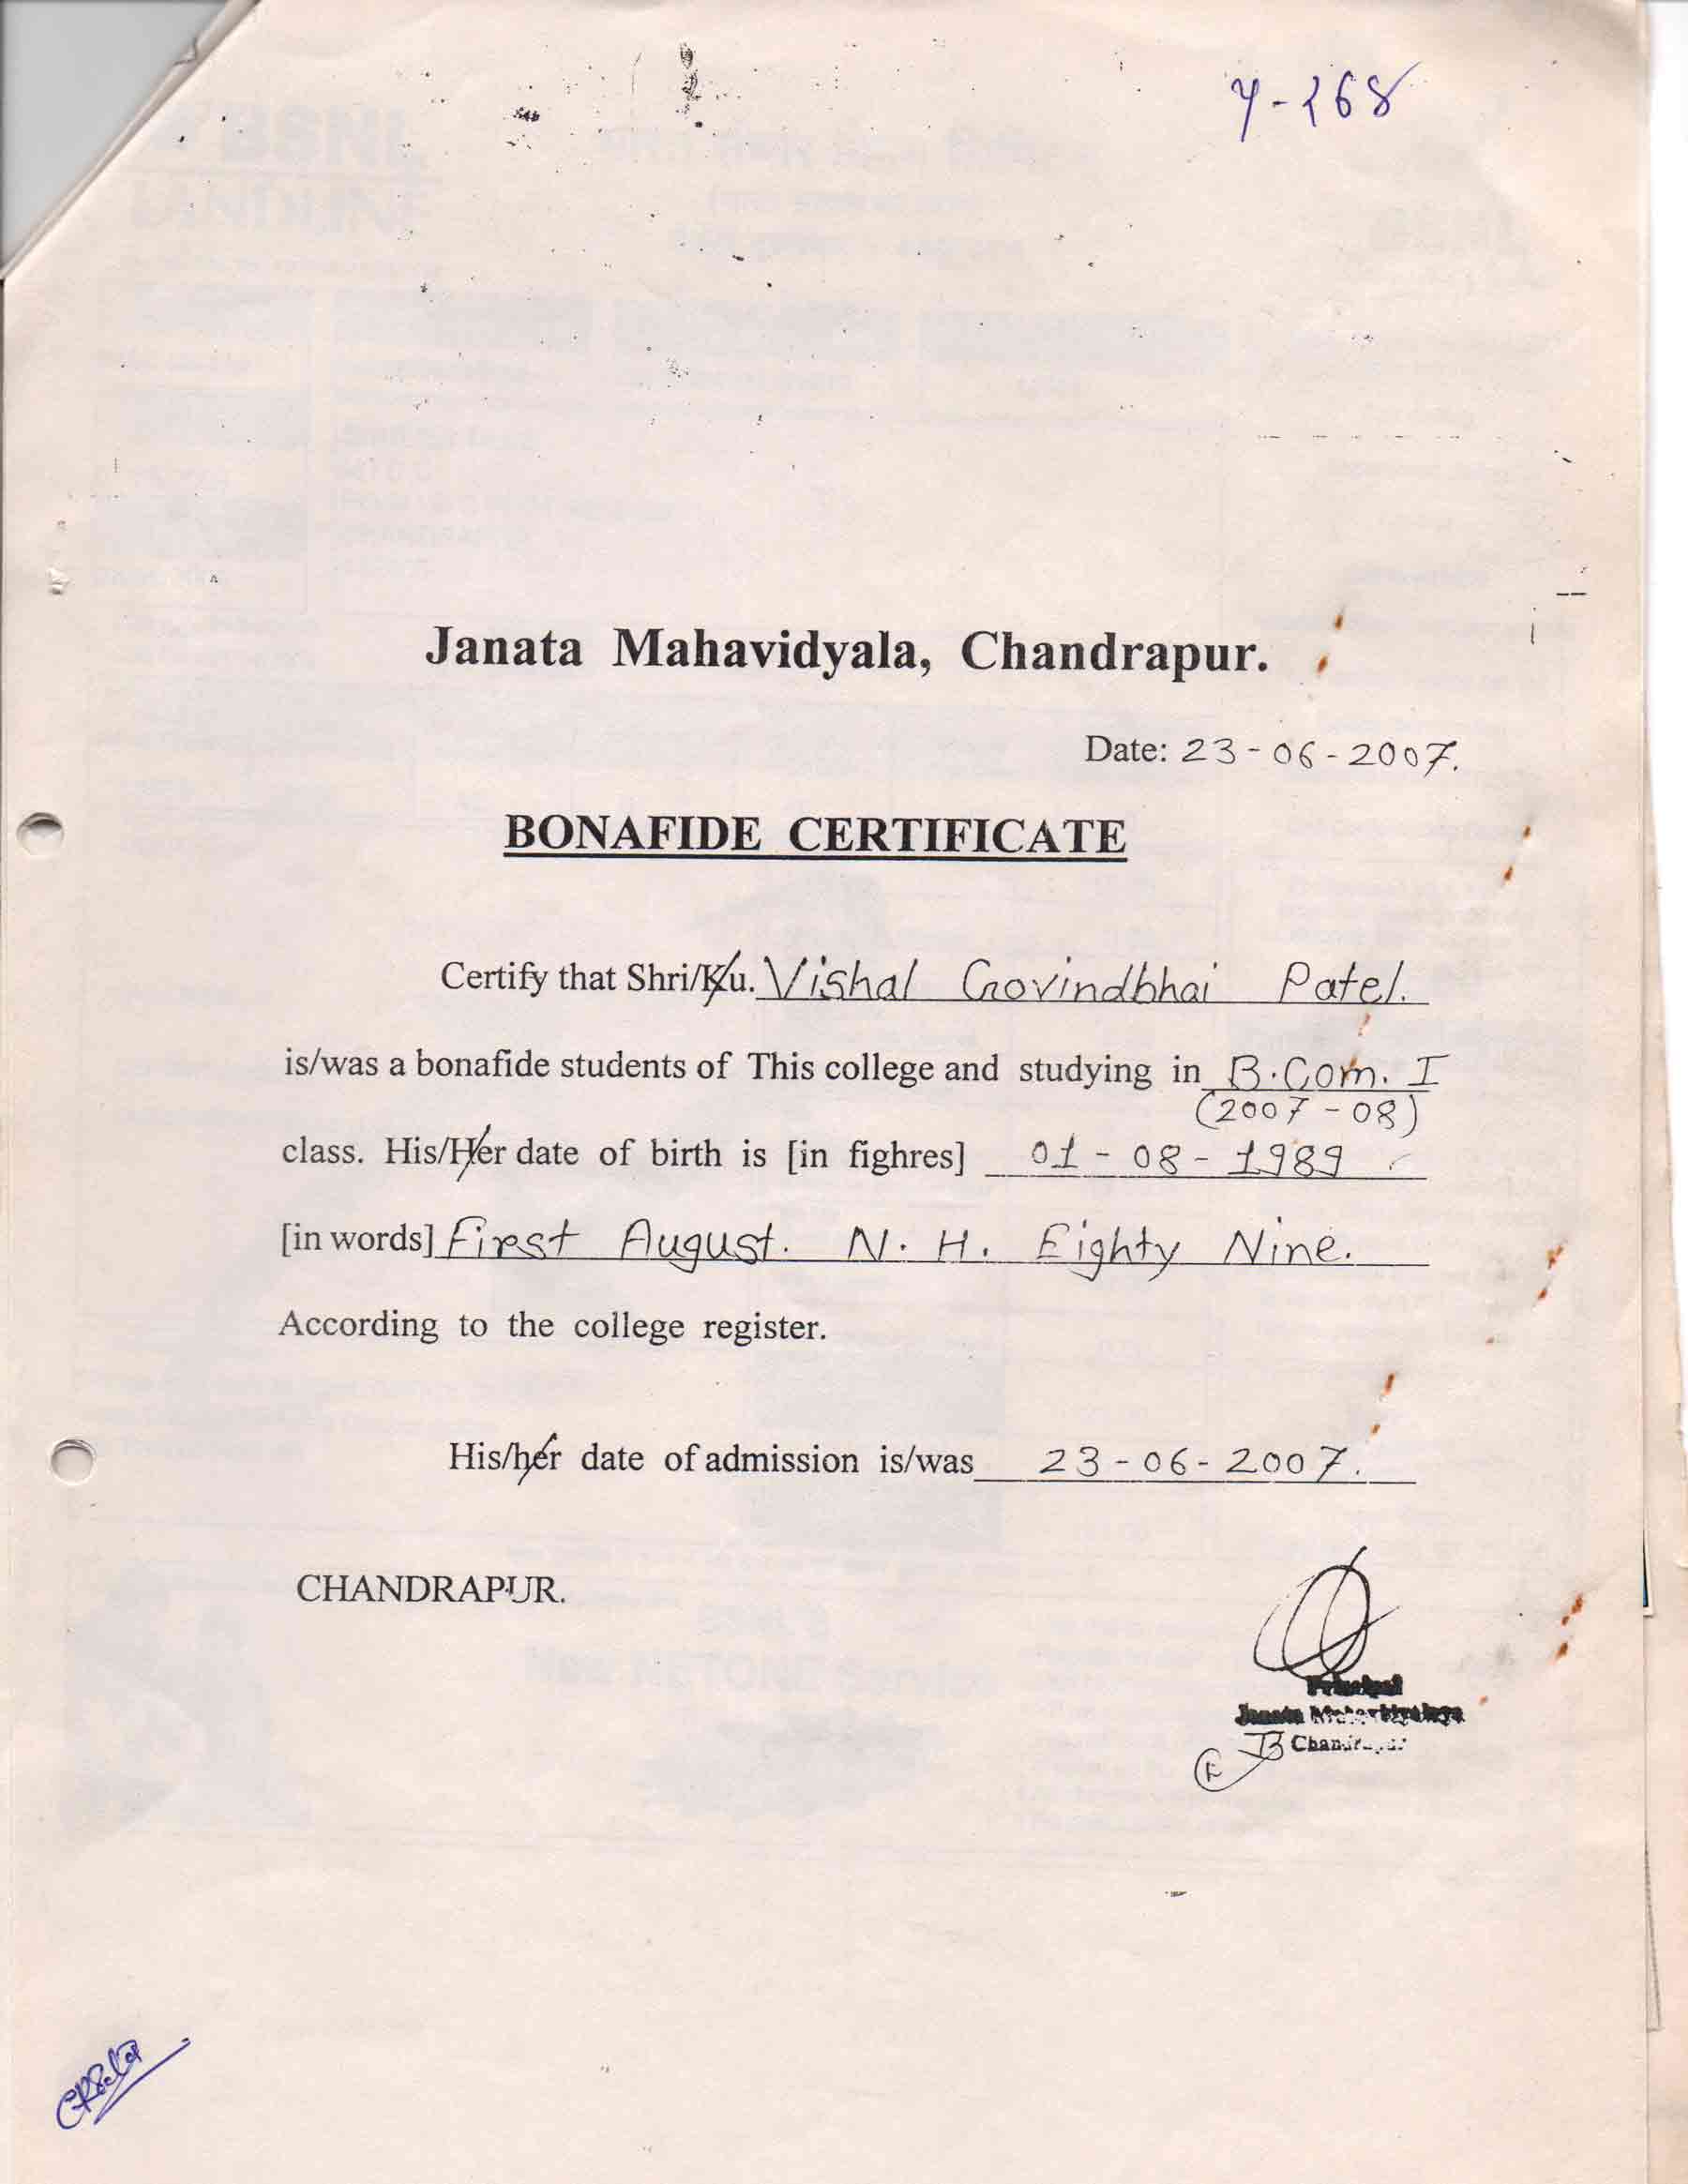 Janata Mahavidyala, Chandrapur.
Date: 23-06-2007.
BONAFIDE CERTIFICATE
Certify that Shri/Ku. Vishal Govindbhai Patel.
is/was a bonafide students of This college and studying in B.Com. I
(2007-08)
class. His/Her date of birth is [in fighres] 01-08-1989
[in words] First August. N. H. Eighty Nine.
According to the college register.
His/her date of admission is/was 23-06-2007.
CHANDRAPUR.
Principal
Janata Mahavidyalaya
Chandrapur